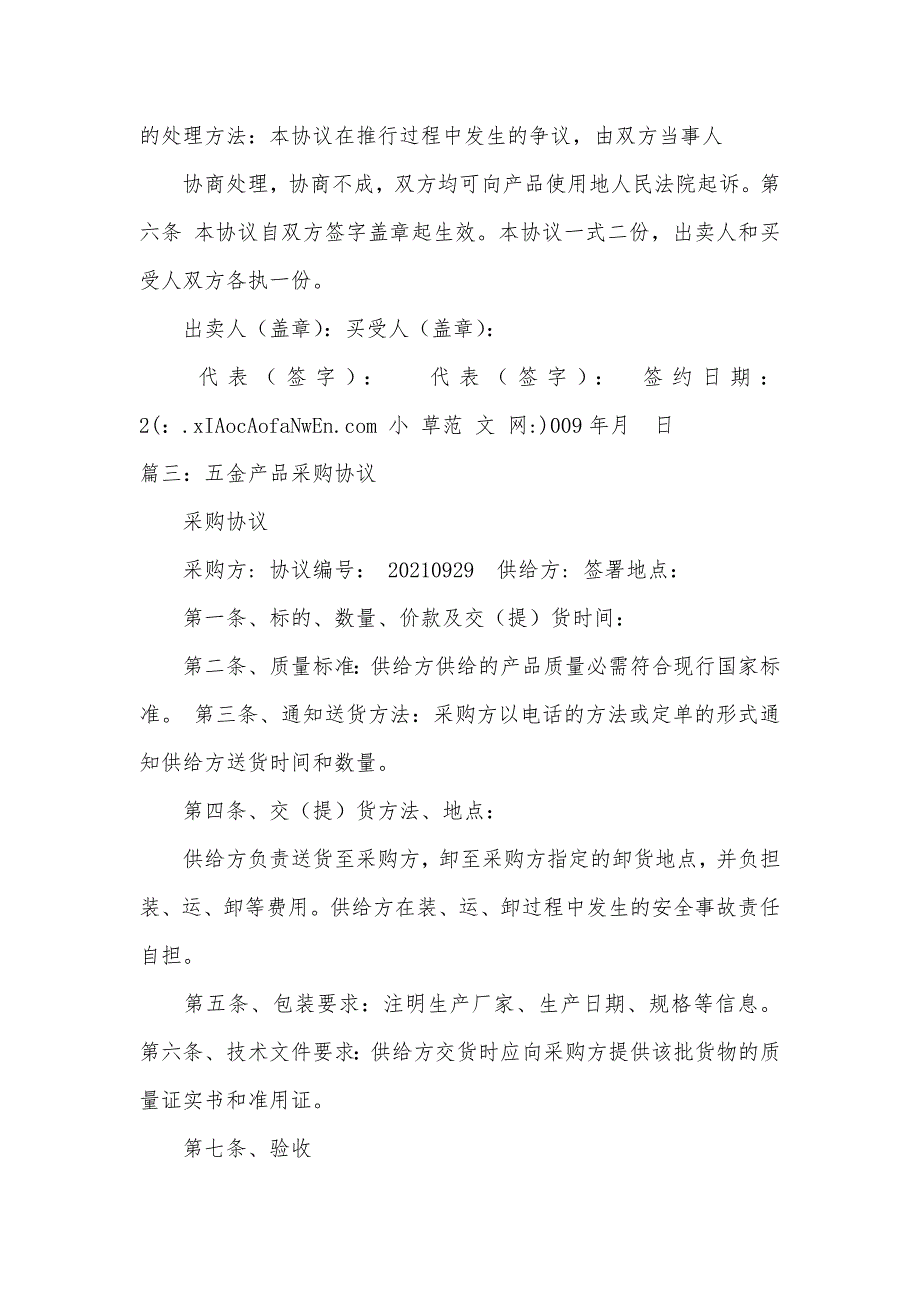 的处理方法：本协议在推行过程中发生的争议，由双方当事人
协商处理，协商不成，双方均可向产品使用地人民法院起诉。第
六条 本协议自双方签字盖章起生效。本协议一式二份，出卖人和买
受人双方各执一份。
出卖人（盖章）：买受人（盖章）：
代表（签字）： 代表（签字）： 签约日期：
2(：.xIAocAofaNwEn.com 小 草范 文 网:)009年月 日
篇三：五金产品采购协议
采购协议
采购方：协议编号： 20210929 供给方：签署地点：
第一条、标的、数量、价款及交（提）货时间：
第二条、质量标准：供给方供给的产品质量必需符合现行国家标
准。 第三条、通知送货方法：采购方以电话的方法或定单的形式通
知供给方送货时间和数量。
第四条、交（提）货方法、地点：
供给方负责送货至采购方，卸至采购方指定的卸货地点，并负担
装、运、卸等费用。供给方在装、运、卸过程中发生的安全事故责任
自担。
第五条、包装要求：注明生产厂家、生产日期、规格等信息。
第六条、技术文件要求：供给方交货时应向采购方提供该批货物的质
量证实书和准用证。
第七条、验收